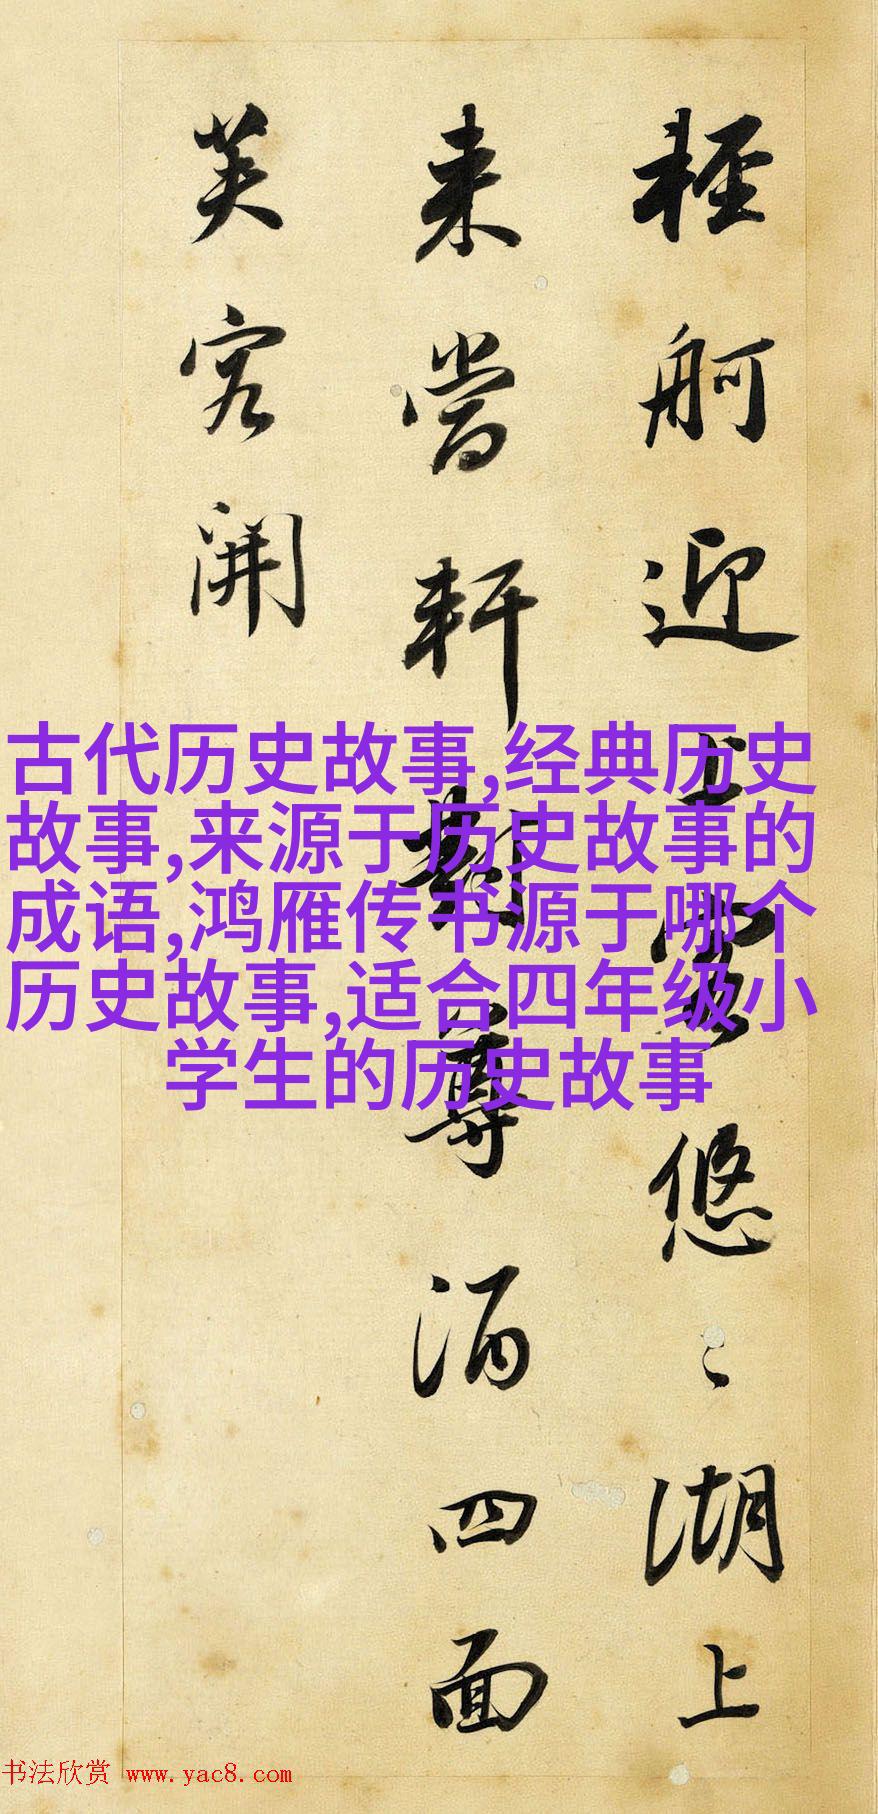 輕舸迎上客悠〻湖上
来當軒對尊酒四面
芙容開
古代历史故事,经典历史
故事,来源于历史故事的
成语,鸿雁传书源于哪个
历史故事,适合四年级小
学生的历史故事
书法欣赏 www.yac8.com